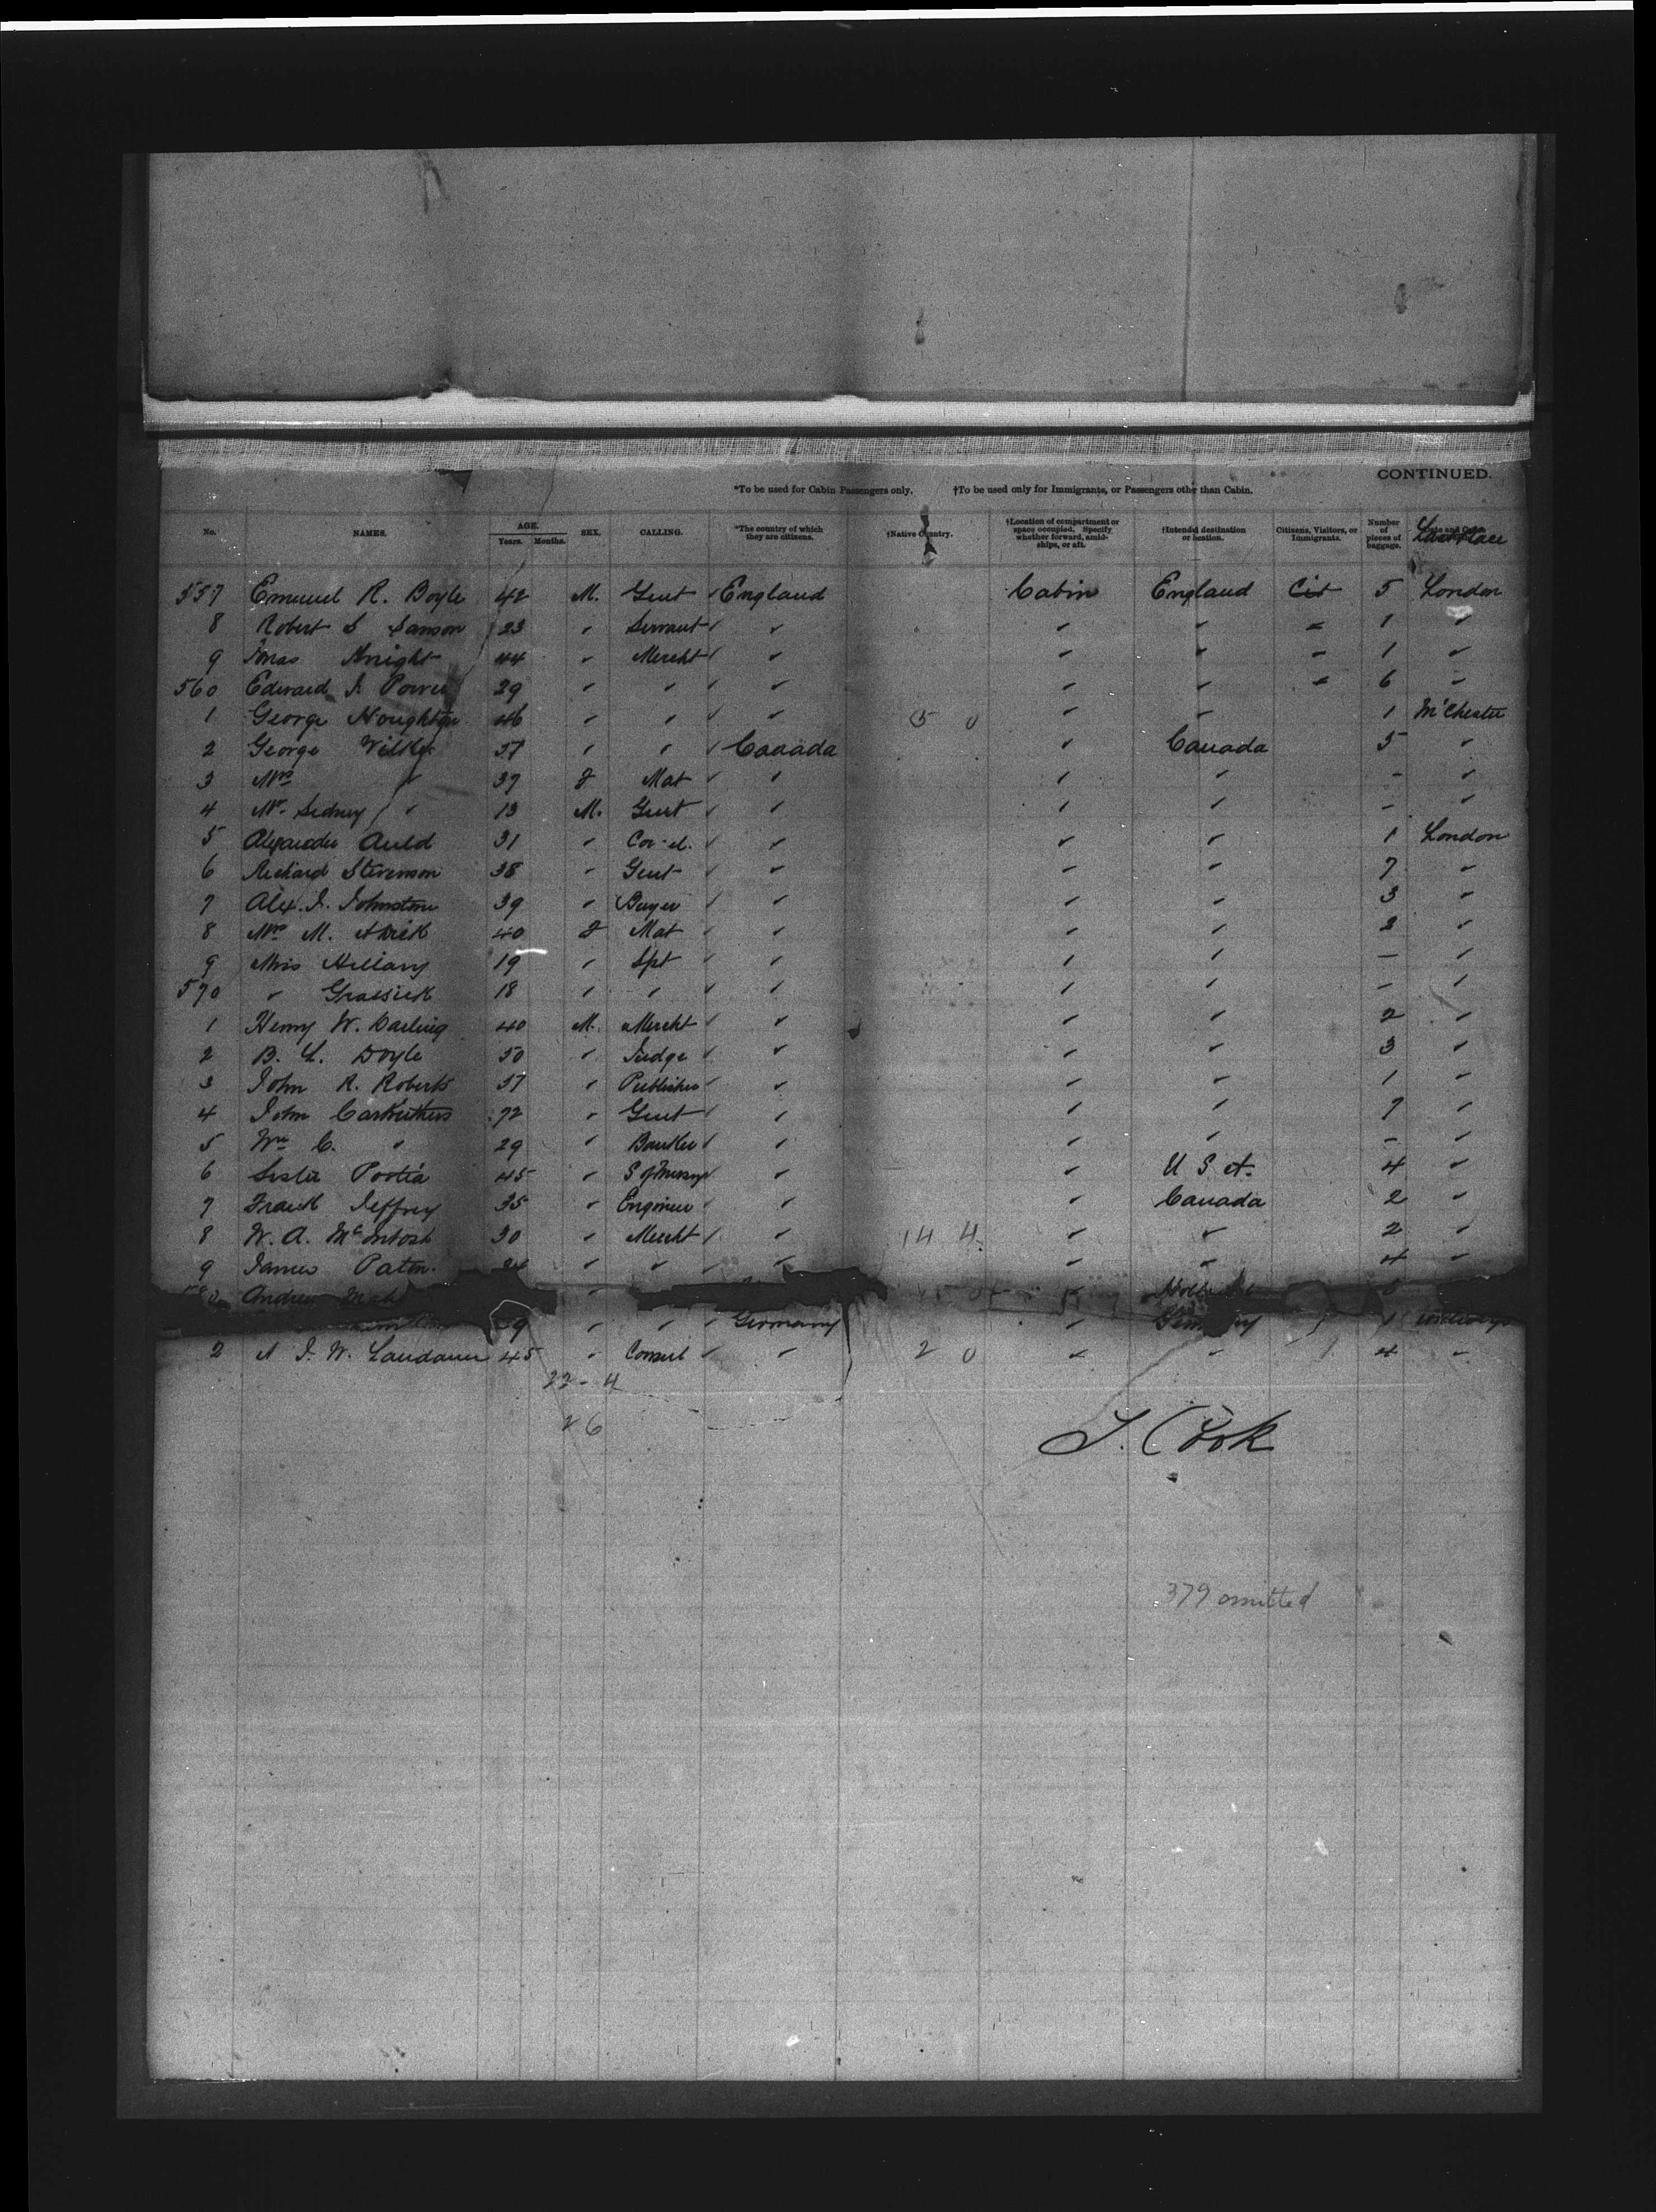 CONTINUED.
*To be used for Cabin Passengers only. †To be used only for Immigrants, or Passengers other than Cabin.
No. NAMES. AGE. Years. Months. SEX. CALLING. *The country of which they are citizens. †Native Country. †Location of compartment or space occupied. Specify whether forward, amidships, or aft. †Intended destination or location. Citizens, Visitors, or Immigrants. Number of pieces of baggage. Last Place
557 Emanuel R. Boyle 42 M. Gent ✓ England Cabin England Cit 5 London
8 Robert S Samson 23 " Servant ✓ " " " " 1 "
9 Jonas Knight 44 " Mercht ✓ " " " " 1 "
560 Edward J. Power 29 " " ✓ " " " " 6 "
1 George Houghton 46 " " ✓ " 5 0 " " 1 M'Chester
2 George Wilkes 57 " " ✓ Canada " Canada 5 "
3 Mrs " 37 F Mat ✓ " " " - "
4 Mr. Sidney " 13 M. Gent ✓ " " " - "
5 Alexander Auld 31 " ✓ " " " 1 London
6 Richard Stevenson 38 " Gent ✓ " " " 7 "
7 Alex. J. Johnstone 39 " Buyer ✓ " " " 3 "
8 Mrs M. 40 F Mat ✓ " " " 2 "
9 Miss Hillary 19 " Spt ✓ " " " - "
570 " Grassick 18 " " ✓ " " " - "
1 Henry W. Darling 40 M. Mercht ✓ " " " 2 "
2 B. L. Doyle 50 " Judge ✓ " " " 3 "
3 John R. Roberts 37 " Publisher ✓ " " " 1 "
4 John Carruthers 72 " Gent ✓ " " " 7 "
5 Wm C. " 29 " Banker ✓ " " " - "
6 Sister Portia 45 " S of Mercy ✓ " " U S A. 4 "
7 Frank Jeffrey 35 " Engineer ✓ " " Canada 2 "
8 W. A. McIntosh 30 " Mercht ✓ " 14 4 " " 2 "
9 James Paton " " ✓ " " " 4 "
Andrew "
9 " " ✓ Germany " 1
2 J. W. Landauer 45 " Consul ✓ " 2 0 " " 4 "
22 - 4
26
J. Cook
379 omitted